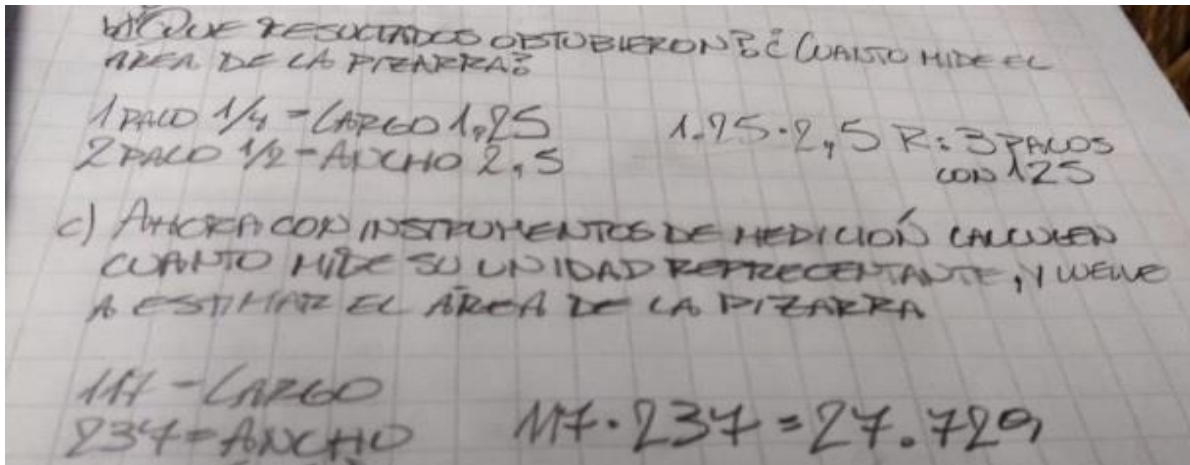 b) ¿QUE RESULTADOS OBTUBIERON? ¿CUANTO MIDE EL
AREA DE LA PIZARRA?
1 PALO 1/4 - LARGO 1,25
2 PALO 1/2 - ANCHO 2,5
1.25 · 2,5 R: 3 PALOS
CON 125
c) AHORA CON INSTRUMENTOS DE MEDICIÓN CALCULEN
CUANTO MIDE SU UNIDAD REPRECENTANTE, Y VUELVE
A ESTIMAR EL ÁREA DE LA PIZARRA
117 - LARGO
237 = ANCHO
117 · 237 = 27.729